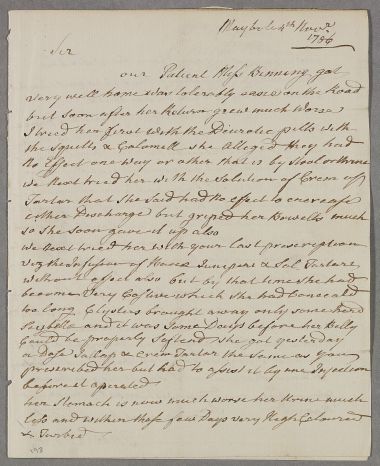 Maybole 4th Novr
1786
Sir
our Patient Miss Kenning got
very well home was tolerably easie on the Road
but soon after her Return grew much Worse
I tried her first with the Diuretic pills with
the Squills & Calomell she alleged they had
No Effect one way or other that is by Stool or Urine
we Next tried her with the Solution of Crem of
Tartar that She Said had No effect to encrease
either Discharge but griped her Bowells much
so She soon gave it up also
we Next tried her with your last prescription
viz the Infusion of Junipers & Sal Tartar
without effect also but by that time she had
become very Costive which She had Concealed
too long Clysters brought away only some hard
and it was Some Days before her Belly
Could be properly she got yesterday
a Dose Jalap & Crem Tartar the Same as you
prescribed her but had to assist it by one Injection
before it operated
her Stomach is now much worse her Urine much
less and within these few Days very High Coloured
& Turbid